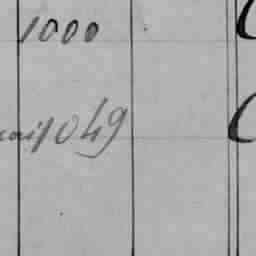 1000
1049